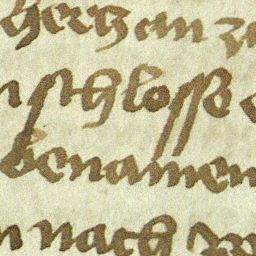 hertz an zu
n schlosse
benamen
n nach w